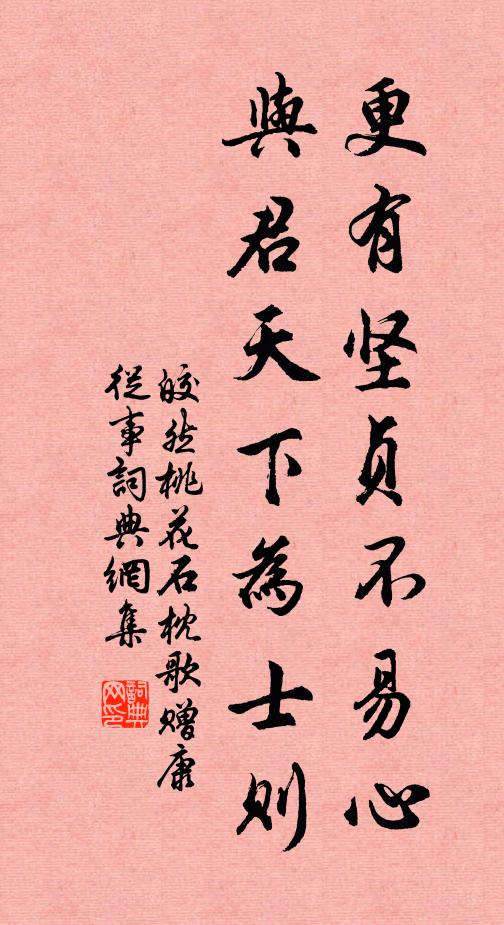 更有坚贞不易心
與君天下為士則
皎然桃花石枕歌赠康
從事詞典網集
詞典
网印